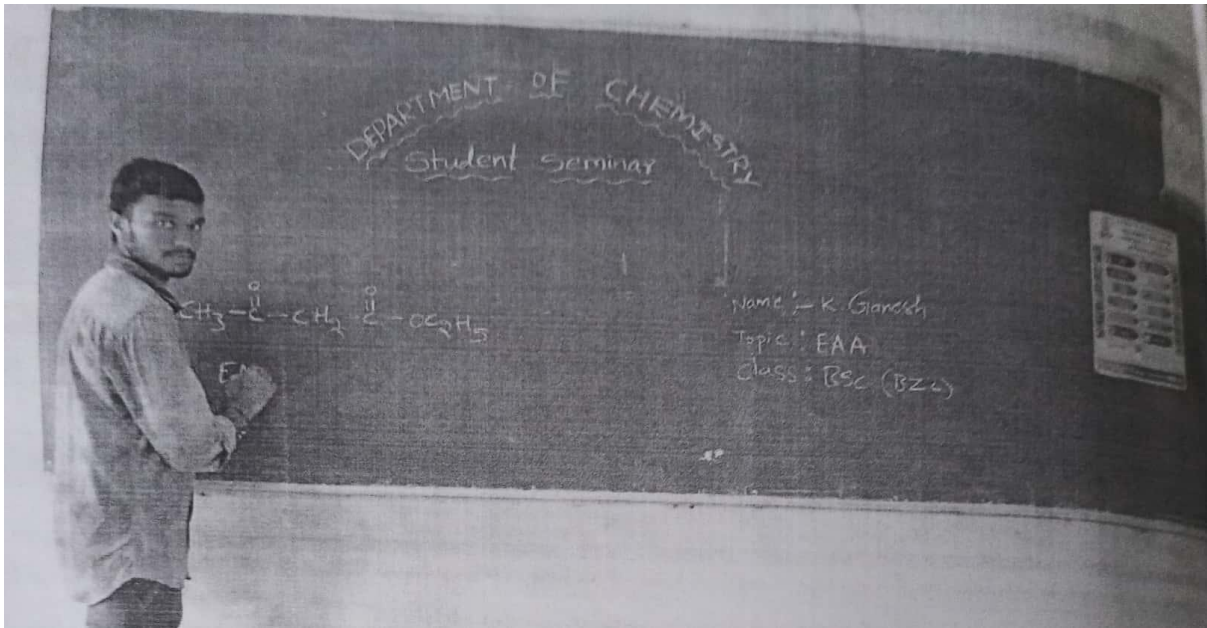 DEPARTMENT OF CHEMISTRY
Student Seminar
O O
CH3-C-CH2 C-OC2H5
Name:- K. Ganesh
Topic: EAA
Class: BSc (BZC)